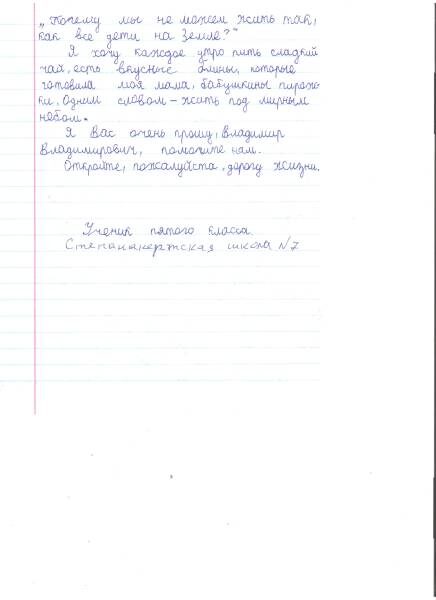 „Почему мы не можем жить так,
как все дети на Земле?"
Я хочу каждое утро пить сладкий
чай, есть вкусные блины, которые
готовила моя мама, бабушкины пирож-
ки. Одним словом – жить под мирным
небом.
Я Вас очень прошу, Владимир
Владимирович, помогите нам.
Откройте, пожалуйста, дорогу жизни.
Ученик пятого класса.
Степанакертская школа N7